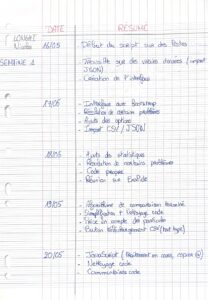 DATE RÉSUMÉ
LONGET
Nicolas 16/05 - Début du script sur des listes
SEMAINE 1 - Travaille sur des valeurs données (import
JSON)
- Création de l'interface
17/05 - Interface avec Bootstrap
- Résolution de certains problèmes
- Ajouts des options
- Import CSV / JSON
18/05 - Ajouts de statistiques
- Résolution de certains problèmes
- Code propre
- Réunion sur
19/05 - Algorithme de comparaison terminé
- Simplification + Nettoyage code
- Prise en compte des
- Bouton téléchargement CSV (tout type)
20/05 - JavaScript (Traitement en cours, copier
- Nettoyage code
- Commentaires code